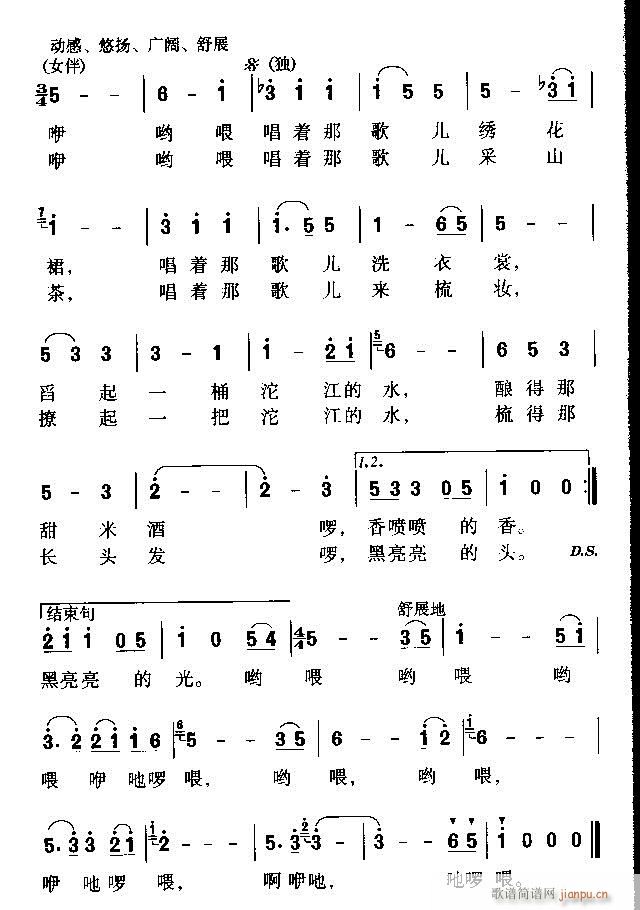 动感、悠扬、广阔、舒展
(女伴) 𝄋 (独)
3/4 5 - - | 6 - i | ♭3 i i | i 5 5 | 5 - ♭3 i |
咿 哟 喂 唱着那 歌 儿 绣 花
咿 哟 喂 唱着那 歌 儿 采 山
i - - | 3 i i | i. 5 5 | 1 - 6 5 |
裙, 唱着那 歌 儿 洗 衣 裳,
茶, 唱着那 歌 儿 来 梳 妆,
5 3 3 | 3 - 1 | i - 2 i | 6 - - | 6 5 3 |
舀 起 一 桶 沱 江的 水, 酿得那
撩 起 一 把 沱 江的 水, 梳得那
1.2.
5 - 3 | 2 - - | 2 - 3 | 5 3 3 0 5 | i 0 0 :‖
甜 米 酒 啰, 香喷喷 的 香。
长 头 发 啰, 黑亮亮 的 头。 D.S.
结束句 舒展地
2 i i 0 5 | i 0 5 4 | 4/4 5 - - 3 5 | i - - 5 i |
黑亮亮 的 光。 哟 喂 哟 喂 哟
3. 2 2 i i 6 | 5 - - 3 5 | 5 - - i 2 | 6 - - - |
喂 咿 吔啰 喂, 哟 喂, 哟 喂,
5. 3 3 2 i | 2 - - - | 5. 3 3 - | 3 - - 6 5 | i 0 0 0 ‖
咿 吔 啰 喂, 啊咿吔, 吔啰 喂。
歌谱简谱网
jianpu.cn